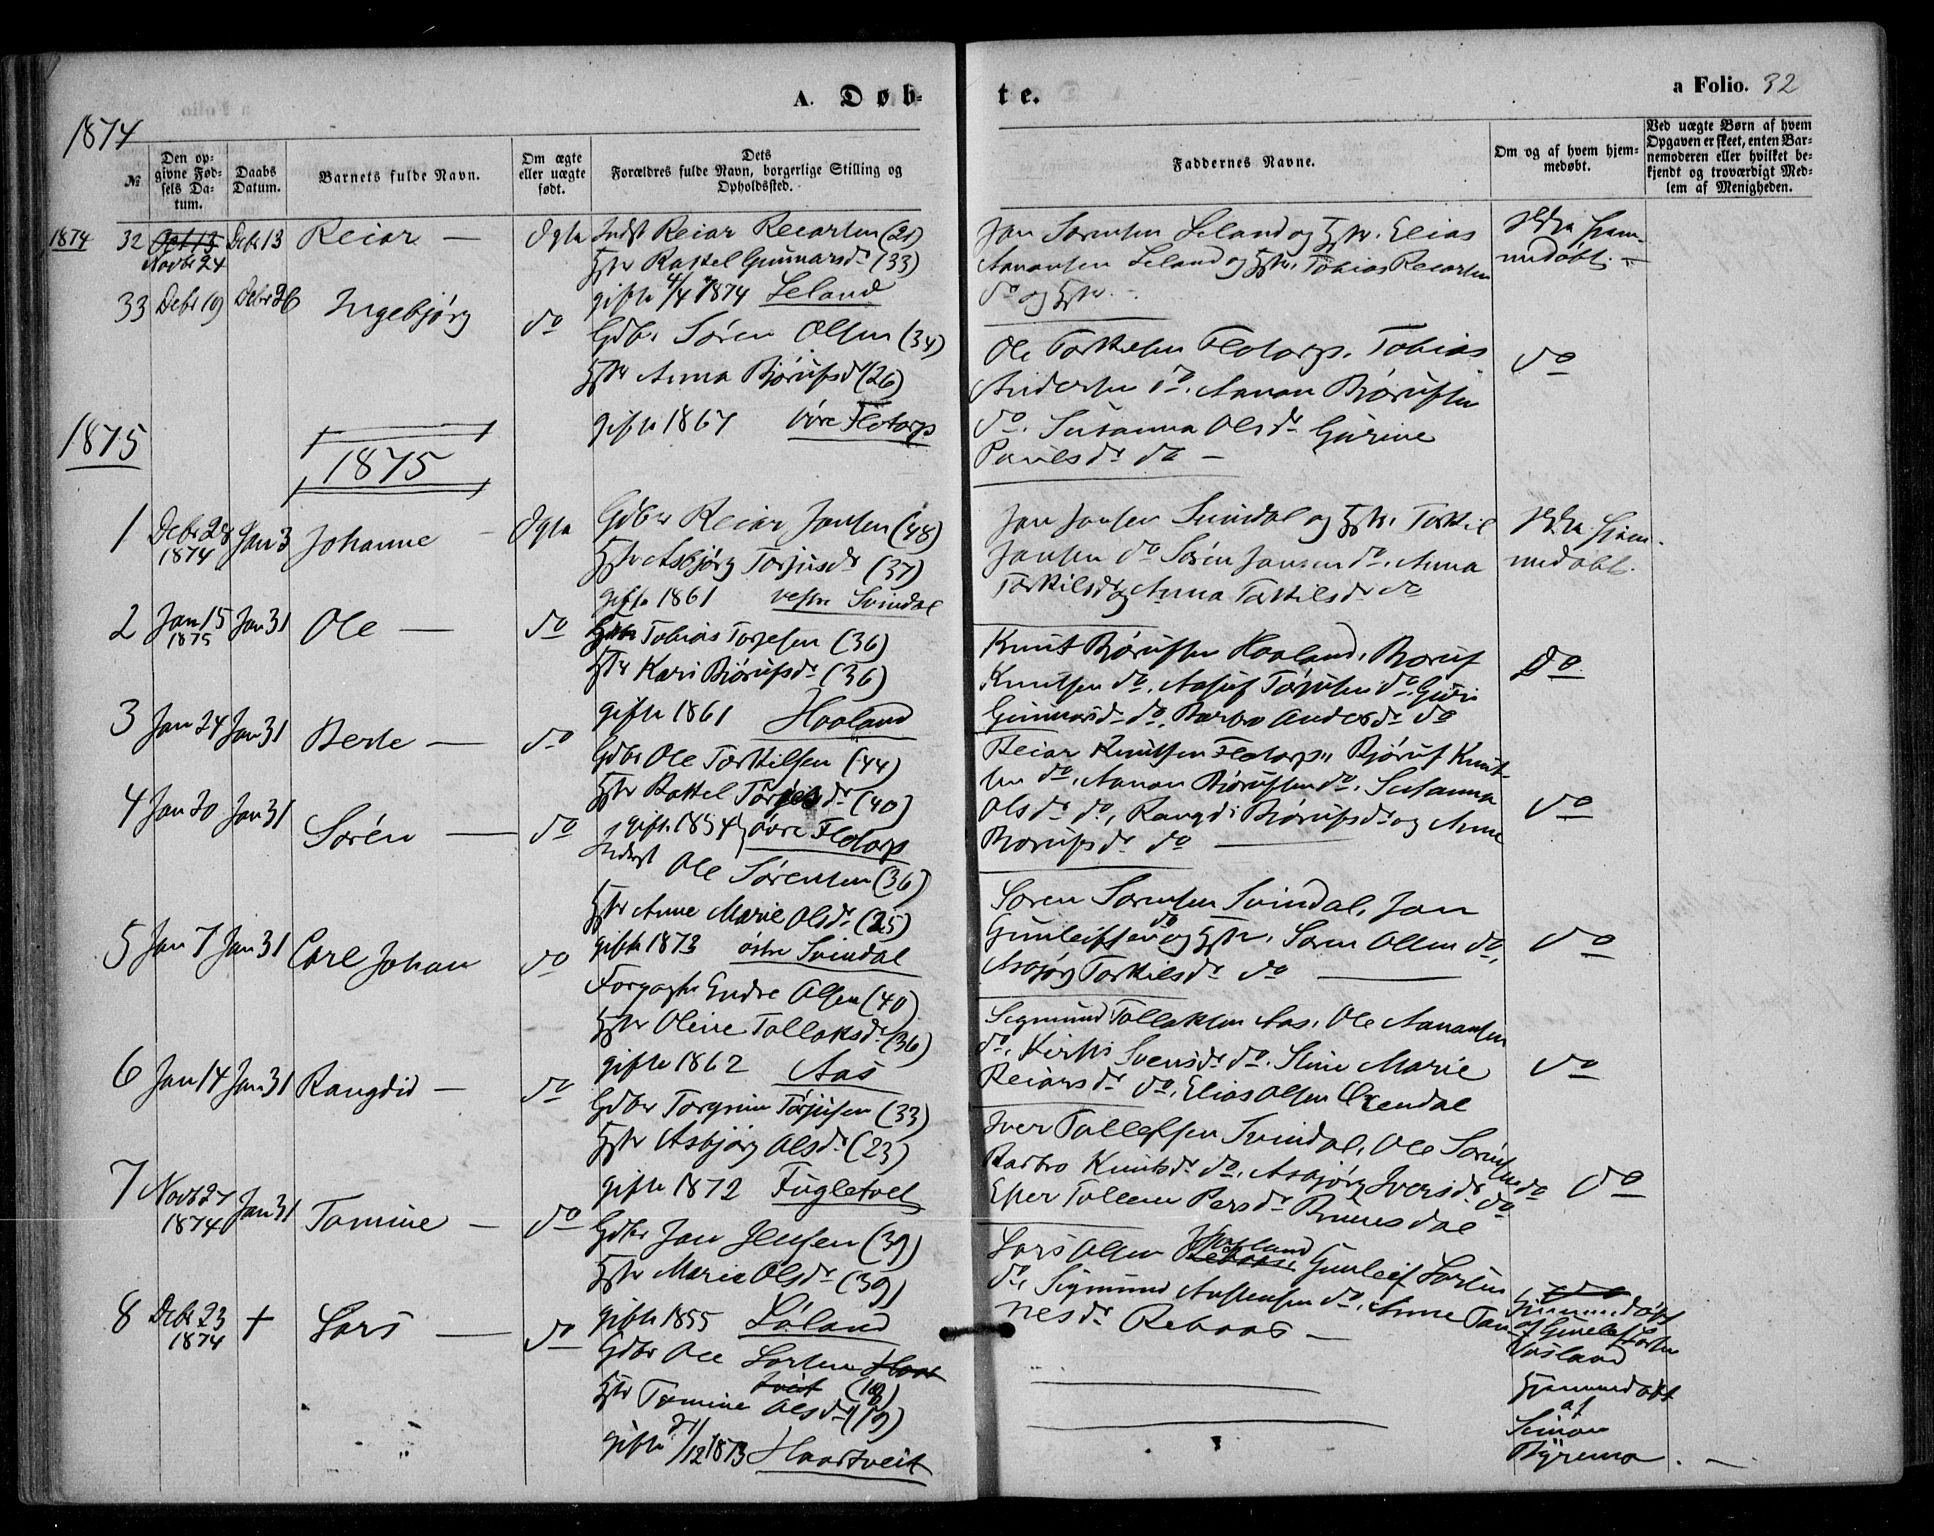 A. Døb-
te.
a Folio. 32
1874
№
Den opgivne Fødsels Datum.
Daabs Datum.
Barnets fulde Navn.
Om ægte eller uægte født.
Dets Forældres fulde Navn, borgerlige Stilling og Opholdssted.
Faddernes Navne.
Om og af hvem hjemmedøbt.
Ved uægte Børn af hvem Opgaven er skeet, enten Barnemoderen eller hvilket bekjendt og troværdigt Medlem af Menigheden.
1874 32 Oct 13 Novbr 24 Debr 13 Reiar — Ægta
Indst Reiar Reiarsen (21)
Hstr Rakkel Gunnarsdr (33)
gifte 4/4 1874 Leland
Jan Sørensen Leland og Hstr. Elias
Aanansen Leland og Hstr. Tobias Reiarsen
do og Hstr. —
Ikke hjemmedøbt. —
33 Debr 19 Debr 26 Ingebjørg do
Gdbr Søren Olsen (34)
Hstr Anna Bjørufsdr (26)
gifte 1867 øvre Flotorp
Ole Torkelsen Flotorp. Tobias
Andersen do. Aanan Bjørufsen
do. Susanna Olsdr Gurine
Paulsdr do —
do
1875
1875
1 Debr 28 1874 Jan 3 Johanne — Ægta
Gdbr Reiar Jansen (48)
Hstr Asbjørg Torjusdr (37)
gifte 1861 vestre Svindal
Jan Jansen Svindal og Hstr. Torkil
Jansen do Søren Jansen do. Anna
Torkilsdr og Anna Torkilsdr do
Ikke hjemmedøbt.
2 Jan 15 1875 Jan 31 Ole — do
Gdbr Tobias Torjesen (36)
Hstr Kari Bjørufsdr (36)
gifte 1861 Haaland
Knut Bjørufsen Haaland. Bjøruf
Knutsen do. Aasuf Tørrisen do. Guri
Gunnarsdr do. Barbro Andersdr do
Do
3 Jan 24 Jan 31 Berte — do
Gdbr Ole Torkilsen (44)
Hstr Rakkel Torjesdr (40)
gifte 1854 øvre Flotorp
Reiar Knutsen Flotorp. Bjøruf Knutsen
do. Aanan Bjørufsen do. Susanna
Olsdr do, Rangdi Bjørufsdr og Anne
Bjørufsdr do —
do
4 Jan 20 Jan 31 Sørén — do
Inderst Ole Sørensen (36)
Hstr Anne Marie Olsdr (25)
gifte 1873 østre Svindal
Søren Sørensen Svindal, Jan
Gunleifsen do og Hstr. Søren Olsen do,
Asbjørg Torkilsdr do —
do
5 Jan 7 Jan 31 Carl Johan do
Forpagter Endre Olsen (40)
Hstr Oline Tallaksdr (36)
gifte 1862 Aas
Sigmund Tallaksen Aas, Ole Aanansen
do, Kirsti Svensdr do. Stine Marie
Reiarsdr do, Elias Olsen Oxendal
do
6 Jan 14 Jan 31 Rangdid — do
Gdbr Torgrim Torjusen (33)
Hstr Asbjørg Olsdr (23)
gifte 1872 Fugletvet
Iver Tallefsen Svindal, Ole Sørensen do
Barbro Knutsdr do, Asbjørg Iversdr do
Ester Tallene Persdr Bruunsdal
do
7 Novbr 27 1874 Jan 31 Tomine — do
Gdbr Jan Jensen (39)
Hstr Marie Olsdr (39)
gifte 1855 Løland
Lars Olsen Rebaas Vasland Gunleif Larsen
do, Sigmund Austensen do. Anne Tannesdr
Rebaas —
do
Hjemmedøbt
af Gunleif Larsen
Vasland
8 Debr 23 1874 + Lars — do
Gdbr Ole Larsen Haartveit (18)
Hstr Tomine Olsdr (19)
gifte 21/12 1873 Haartveit
Hjemmedøbt
af
Simon
Byremo. —